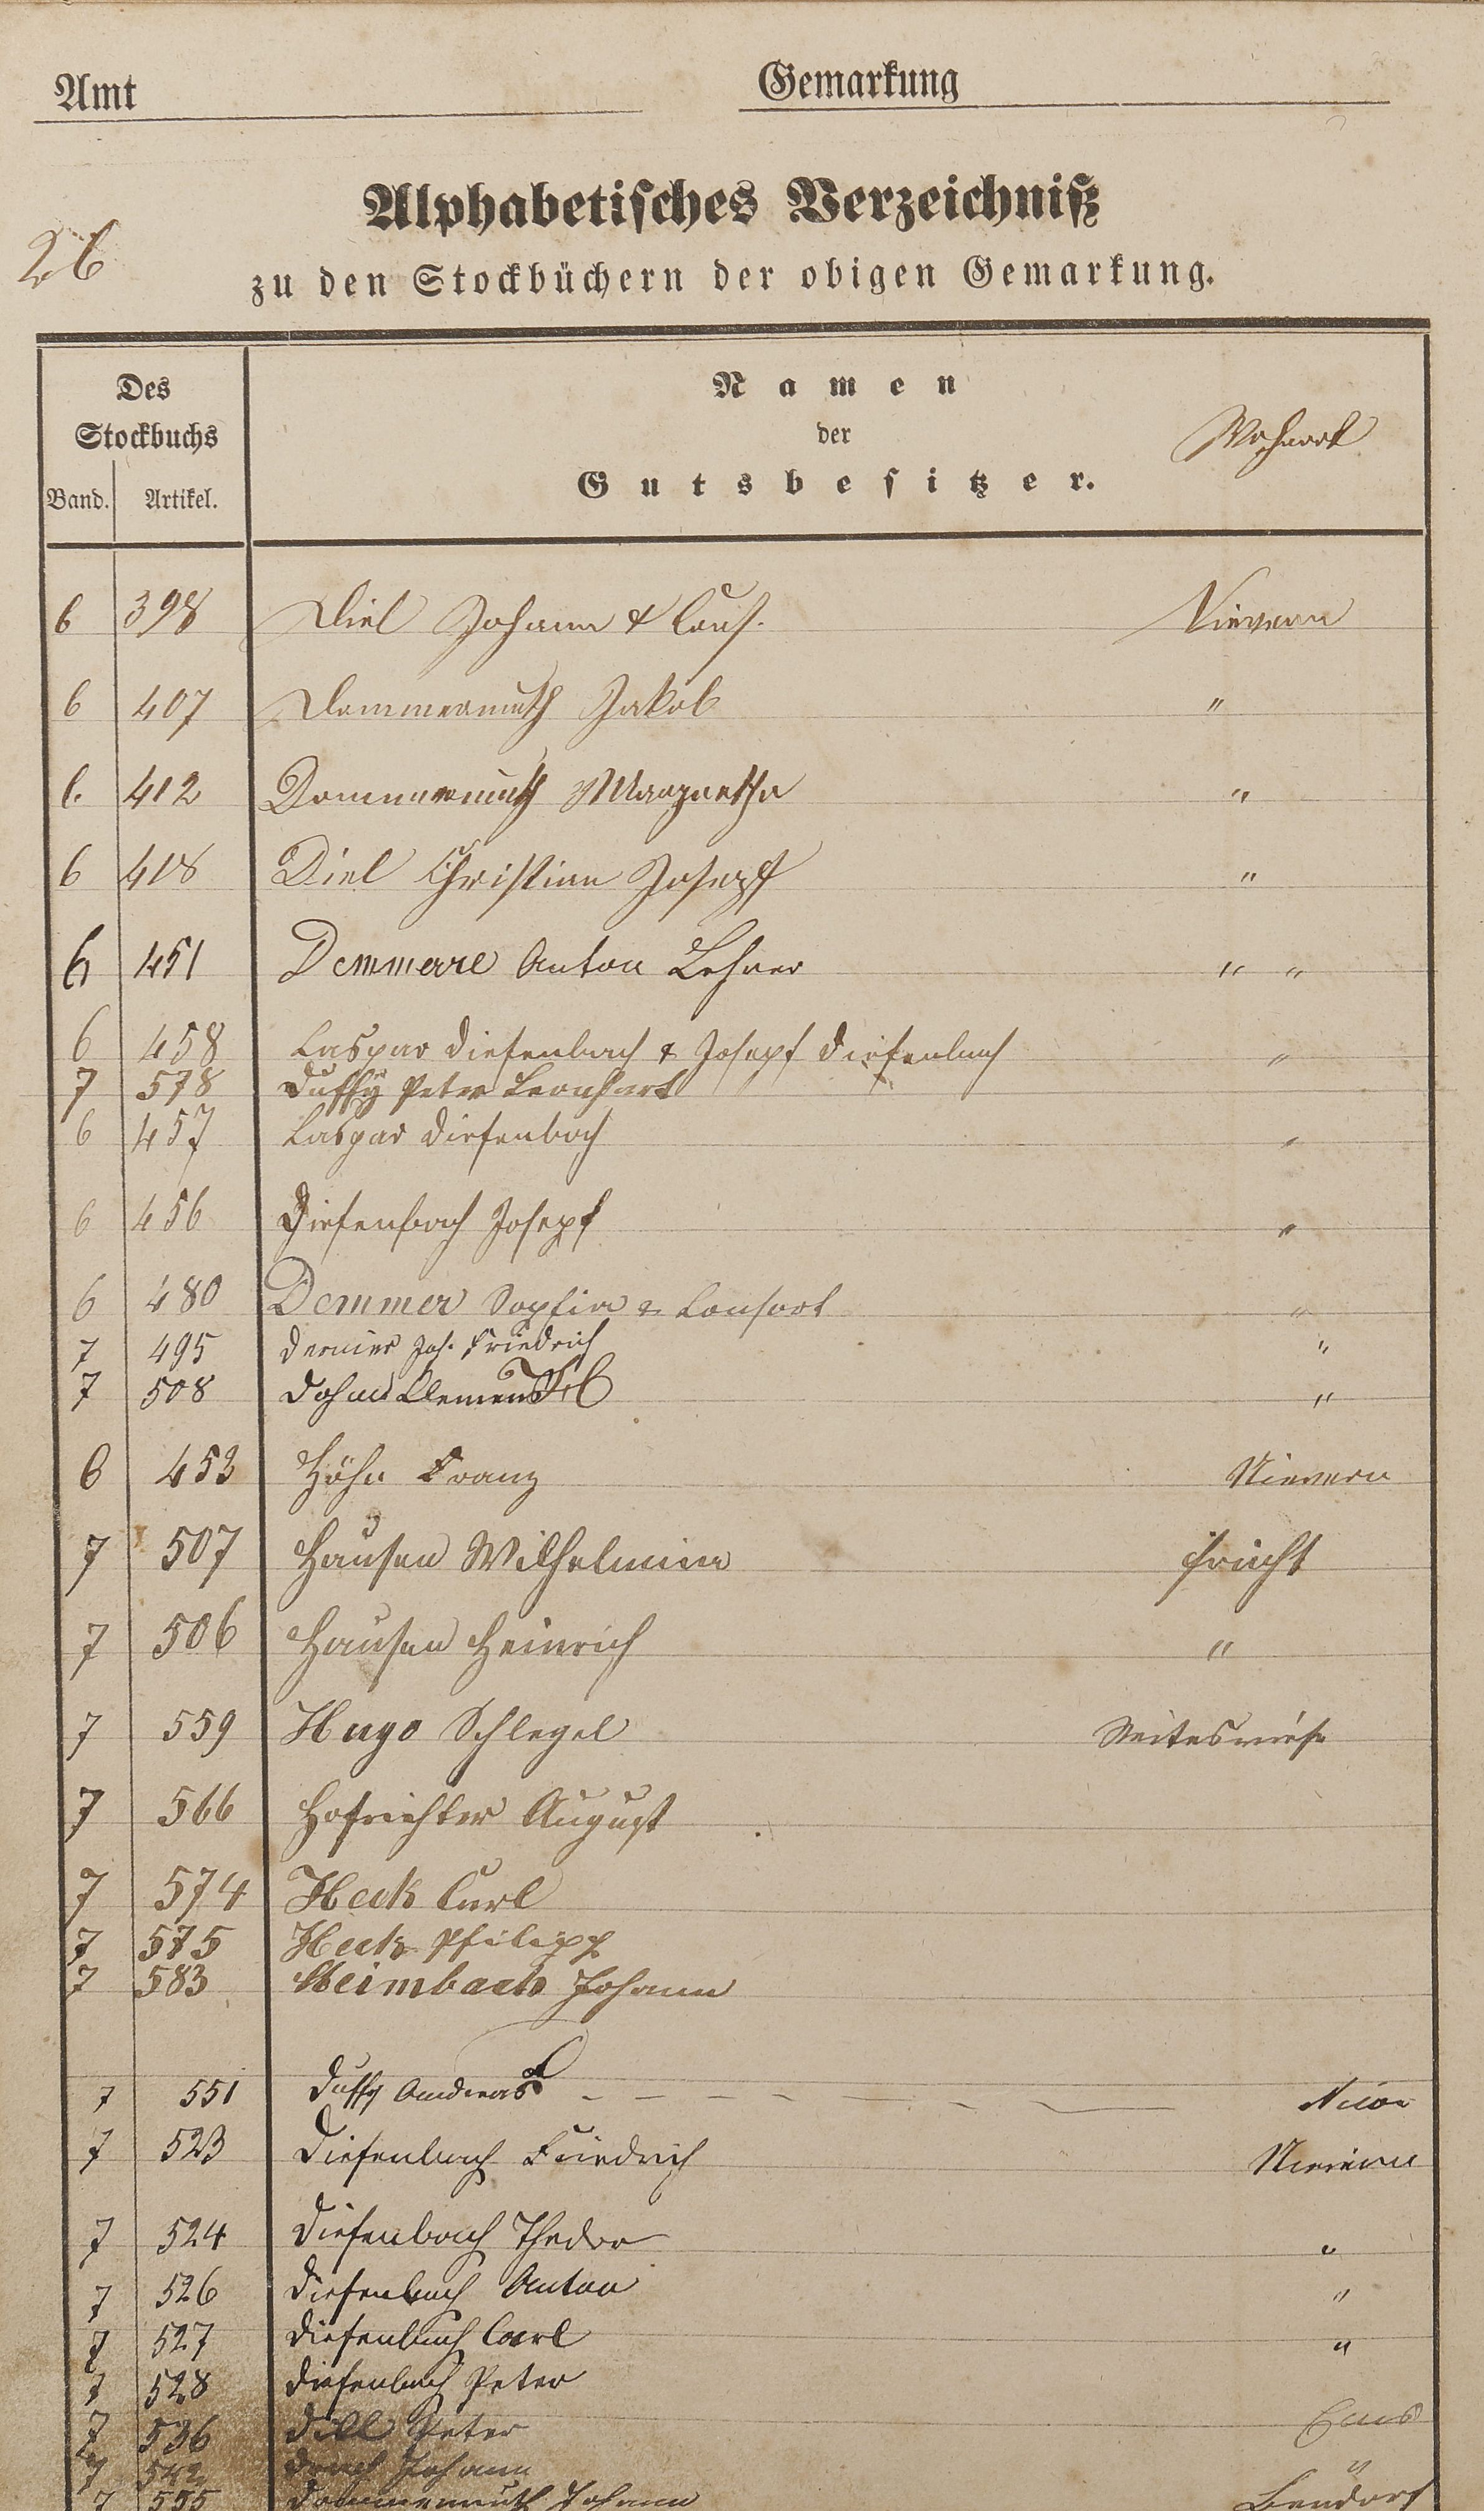 Amt
Gemarkung
Alphabetisches Verzeichniß
26
zu den Stockbüchern der obigen Gemarkung.
Des
Stockbuchs
Band. Artikel.
Namen
der
Gutsbesitzer.
Wohnort
6 398 Diel Johann & Cons. Nievern
6 407 Dommermuth Jakob "
6. 412 Dommermuth Margretha "
6 418 Diel Christian Joseph "
6 451 Anton Lehrer " "
6 458 Caspar Diefenbach & Joseph Diefenbach "
7 578 Duffy Peter Leonhart
6 457 Caspar Diefenbach "
6 456 Diefenbach Joseph "
6 480 Demmer Sophia & Consort "
7 495 Joh. Friedrich "
7 508 Clemens "
6 453 Höhn Franz Nievern
7 507 Hausen Wilhelmine Frücht
7 506 Hausen Heinrich "
7 559 Hugo Schlegel
7 566 Hofrichter August
7 574 Heck Carl
7 575 Heck Philipp
7 583 Heimbach Johann
7 551 Duffy Andreas
7 523 Diefenbach Friedrich Nievern
7 524 Diefenbach Thedor "
7 526 Diefenbach Anton "
7 527 Diefenbach Carl "
7 528 Diefenbach Peter
7 536 Dill Peter Ems
7 542 Johann "
7 555 Dommermuth Johann Bendorf